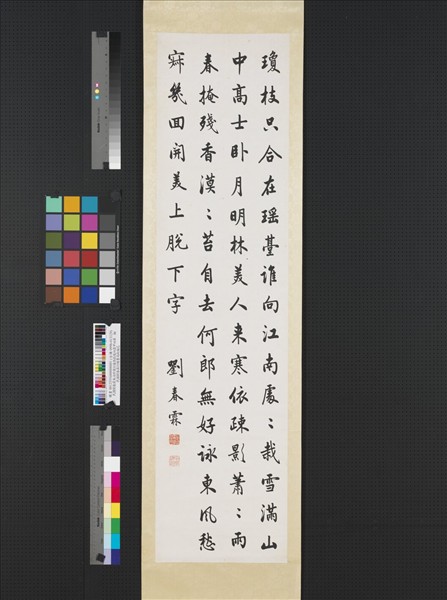 瓊枝只合在瑶臺誰向江南處〻栽雪滿山
中高士卧月明林美人来寒依疎影蕭〻雨
春掩殘香漠〻苔自去何郎無好詠東風愁
寂幾回開美上脫下字
劉春霖